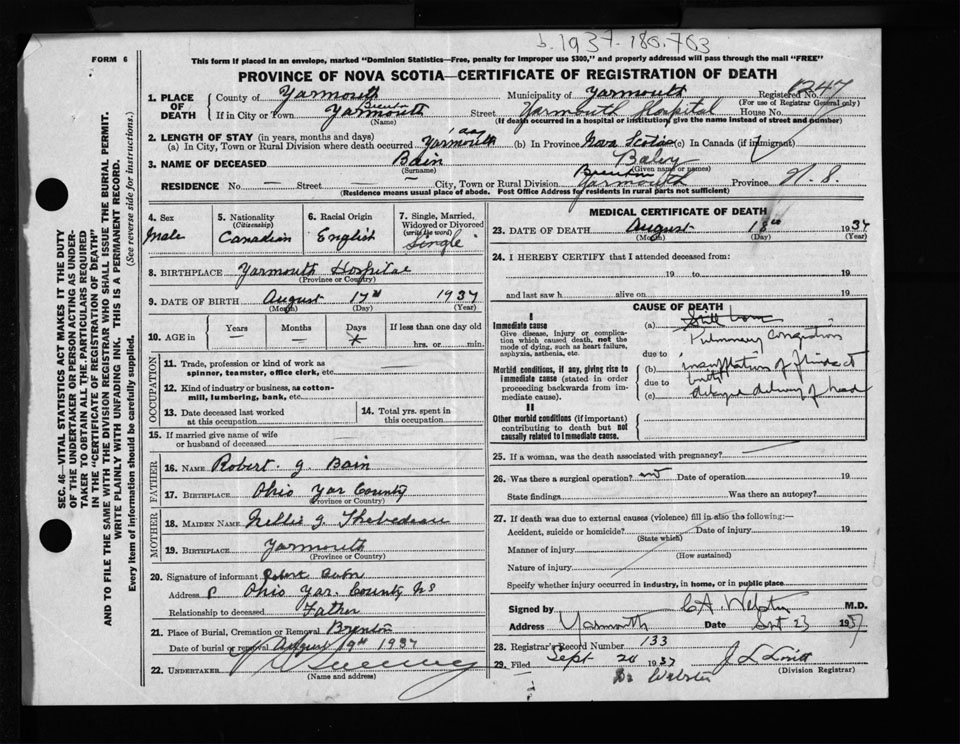 b. 1937. 180.703
FORM 6
This form if placed in an envelope, marked "Dominion Statistics—Free, penalty for improper use $300," and properly addressed will pass through the mail "FREE"
PROVINCE OF NOVA SCOTIA—CERTIFICATE OF REGISTRATION OF DEATH
1. PLACE OF DEATH
County of Yarmouth Municipality of Yarmouth Registered No.
(For use of Registrar General only)
Brenton
If in City or Town Yarmouth Street Yarmouth Hospital House No.
(Name) (If death occurred in a hospital or institution, give the name instead of street and number)
2. LENGTH OF STAY (in years, months and days)
1 day
(a) In City, Town or Rural Division where death occurred Yarmouth (b) In Province Nova Scotia (c) In Canada (if immigrant)
3. NAME OF DECEASED Bain Baby
(Surname) (Given name or names)
Brenton
RESIDENCE No. — Street — City, Town or Rural Division Yarmouth Province N. S.
(Residence means usual place of abode. Post Office Address for residents in rural parts not sufficient)
4. Sex
Male
5. Nationality
(Citizenship)
Canadian
6. Racial Origin
English
7. Single, Married, Widowed or Divorced
(write the word)
Single
8. BIRTHPLACE Yarmouth Hospital
(Province or Country)
9. DATE OF BIRTH August 17th 1937
(Month) (Day) (Year)
10. AGE in Years Months Days If less than one day old
— — hrs. or min.
OCCUPATION
11. Trade, profession or kind of work as
spinner, teamster, office clerk, etc.
12. Kind of industry or business, as cotton-
mill, lumbering, bank, etc.
13. Date deceased last worked
at this occupation
14. Total yrs. spent in
this occupation
15. If married give name of wife
or husband of deceased
FATHER
16. NAME Robert J. Bain
17. BIRTHPLACE Ohio Yar County
(Province or Country)
MOTHER
18. MAIDEN NAME Nellie J. Thebedeau
19. BIRTHPLACE Yarmouth
(Province or Country)
20. Signature of informant Robert Bain
Address Ohio Yar. County NS
Relationship to deceased Father
21. Place of Burial, Cremation or Removal Brenton
Date of burial or removal August 19th 1937
22. UNDERTAKER
(Name and address)
MEDICAL CERTIFICATE OF DEATH
23. DATE OF DEATH August 18th 1937
(Month) (Day) (Year)
24. I HEREBY CERTIFY that I attended deceased from:
19 to 19
and last saw h alive on 19
CAUSE OF DEATH
I
Immediate cause
Give disease, injury or complica-
tion which caused death, not the
mode of dying, such as heart failure,
asphyxia, asthenia, etc.
Morbid conditions, if any, giving rise to
immediate cause (stated in order
proceeding backwards from im-
mediate cause).
II
Other morbid conditions (if important)
contributing to death but not
causally related to immediate cause.
(a) Still born
Pulmonary Congestion
due to
(b)
due to
(c) delayed delivery of head
25. If a woman, was the death associated with pregnancy?
26. Was there a surgical operation? Date of operation 19
State findings Was there an autopsy?
27. If death was due to external causes (violence) fill in also the following:—
Accident, suicide or homicide? Date of injury 19
(State which)
Manner of injury
(How sustained)
Nature of injury
Specify whether injury occurred in industry, in home, or in public place
Signed by C.A. Webster M.D.
Address Yarmouth Date Sept 23 1937
28. Registrar's Record Number 133
29. Filed Sept 24 1937
(Division Registrar)
Dr Webster
SEC. 46—VITAL STATISTICS ACT MAKES IT THE DUTY
OF THE UNDERTAKER OR PERSON ACTING AS UNDER-
TAKER TO OBTAIN ALL THE PARTICULARS REQUIRED
IN THE "CERTIFICATE OF REGISTRATION OF DEATH"
AND TO FILE THE SAME WITH THE DIVISION REGISTRAR WHO SHALL ISSUE THE BURIAL PERMIT.
WRITE PLAINLY WITH UNFADING INK. THIS IS A PERMANENT RECORD.
Every item of information should be carefully supplied. (See reverse side for instructions.)